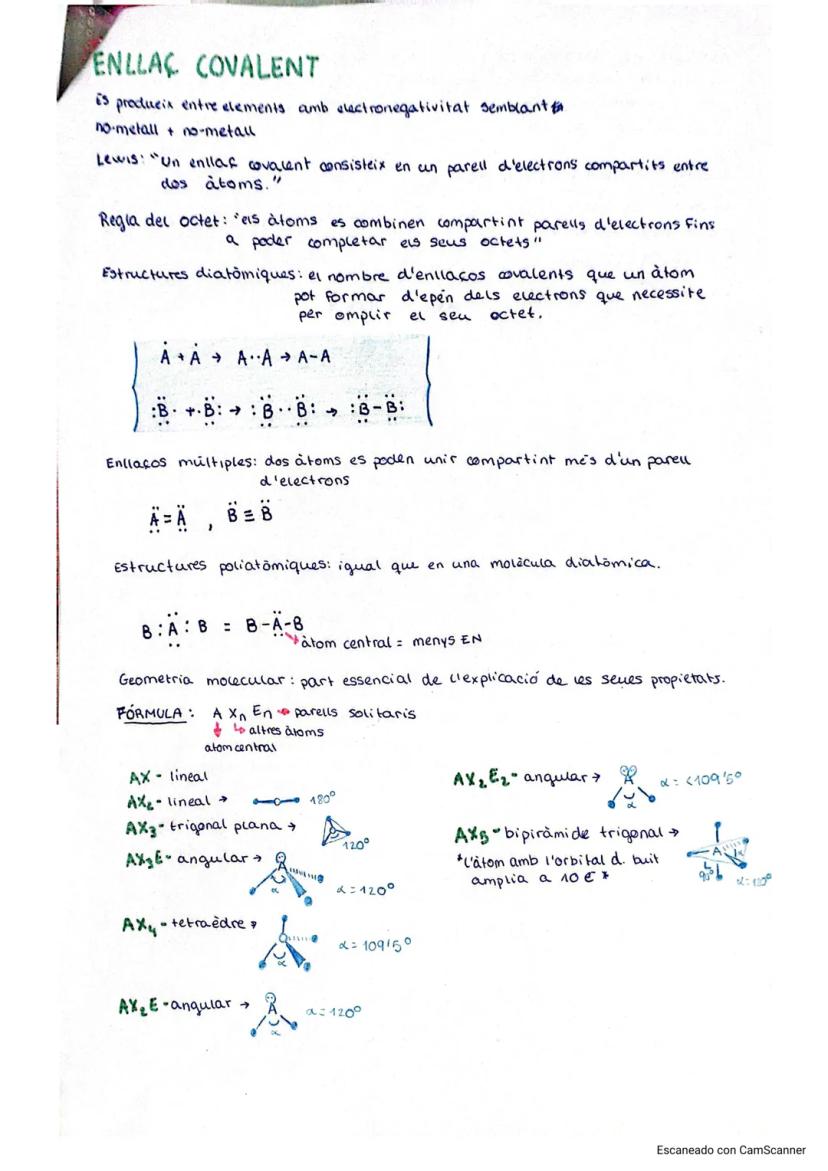 ENLLAÇ COVALENT
És produeix entre elements amb electronegativitat semblant
no-metall + no-metall
Lewis: "Un enllaç covalent consisteix en un parell d'electrons compartits entre
dos àtoms."
Regla del octet: "els àtoms es combinen compartint parells d'electrons fins
a poder completar els seus octets"
Estructures diatòmiques: el nombre d'enllaços covalents que un àtom
pot formar d'epén dels electrons que necessite
per omplir el seu octet.
Ȧ + Ȧ → A··A → A-A
:B̈· + ·B̈: → :B̈··B̈: → :B̈-B̈:
Enllaços múltiples: dos àtoms es poden unir compartint més d'un parell
d'electrons
Ä=Ä , B̈≡B̈
Estructures poliatòmiques: igual que en una molècula diatòmica.
B:Ä:B = B-Ä-B
àtom central = menys EN
Geometria molecular: part essencial de l'explicació de les seues propietats.
FÓRMULA: A Xn En → parells solitaris
↳ altres àtoms
atom central
AX - lineal
AX₂ - lineal → 180º
AX₃ - trigonal plana →
120º
AX₃E - angular → A
α α = 120º
AX₄ - tetraèdre →
α α = 109'5º
AX₂E - angular → A α = 120º
α
AX₂E₂ - angular → A α = <109'5º
α
AX5 - bipiràmide trigonal →
A α
*L'àtom amb l'orbital d. buit
amplia a 10 e *
90º α = 120º
Escaneado con CamScanner